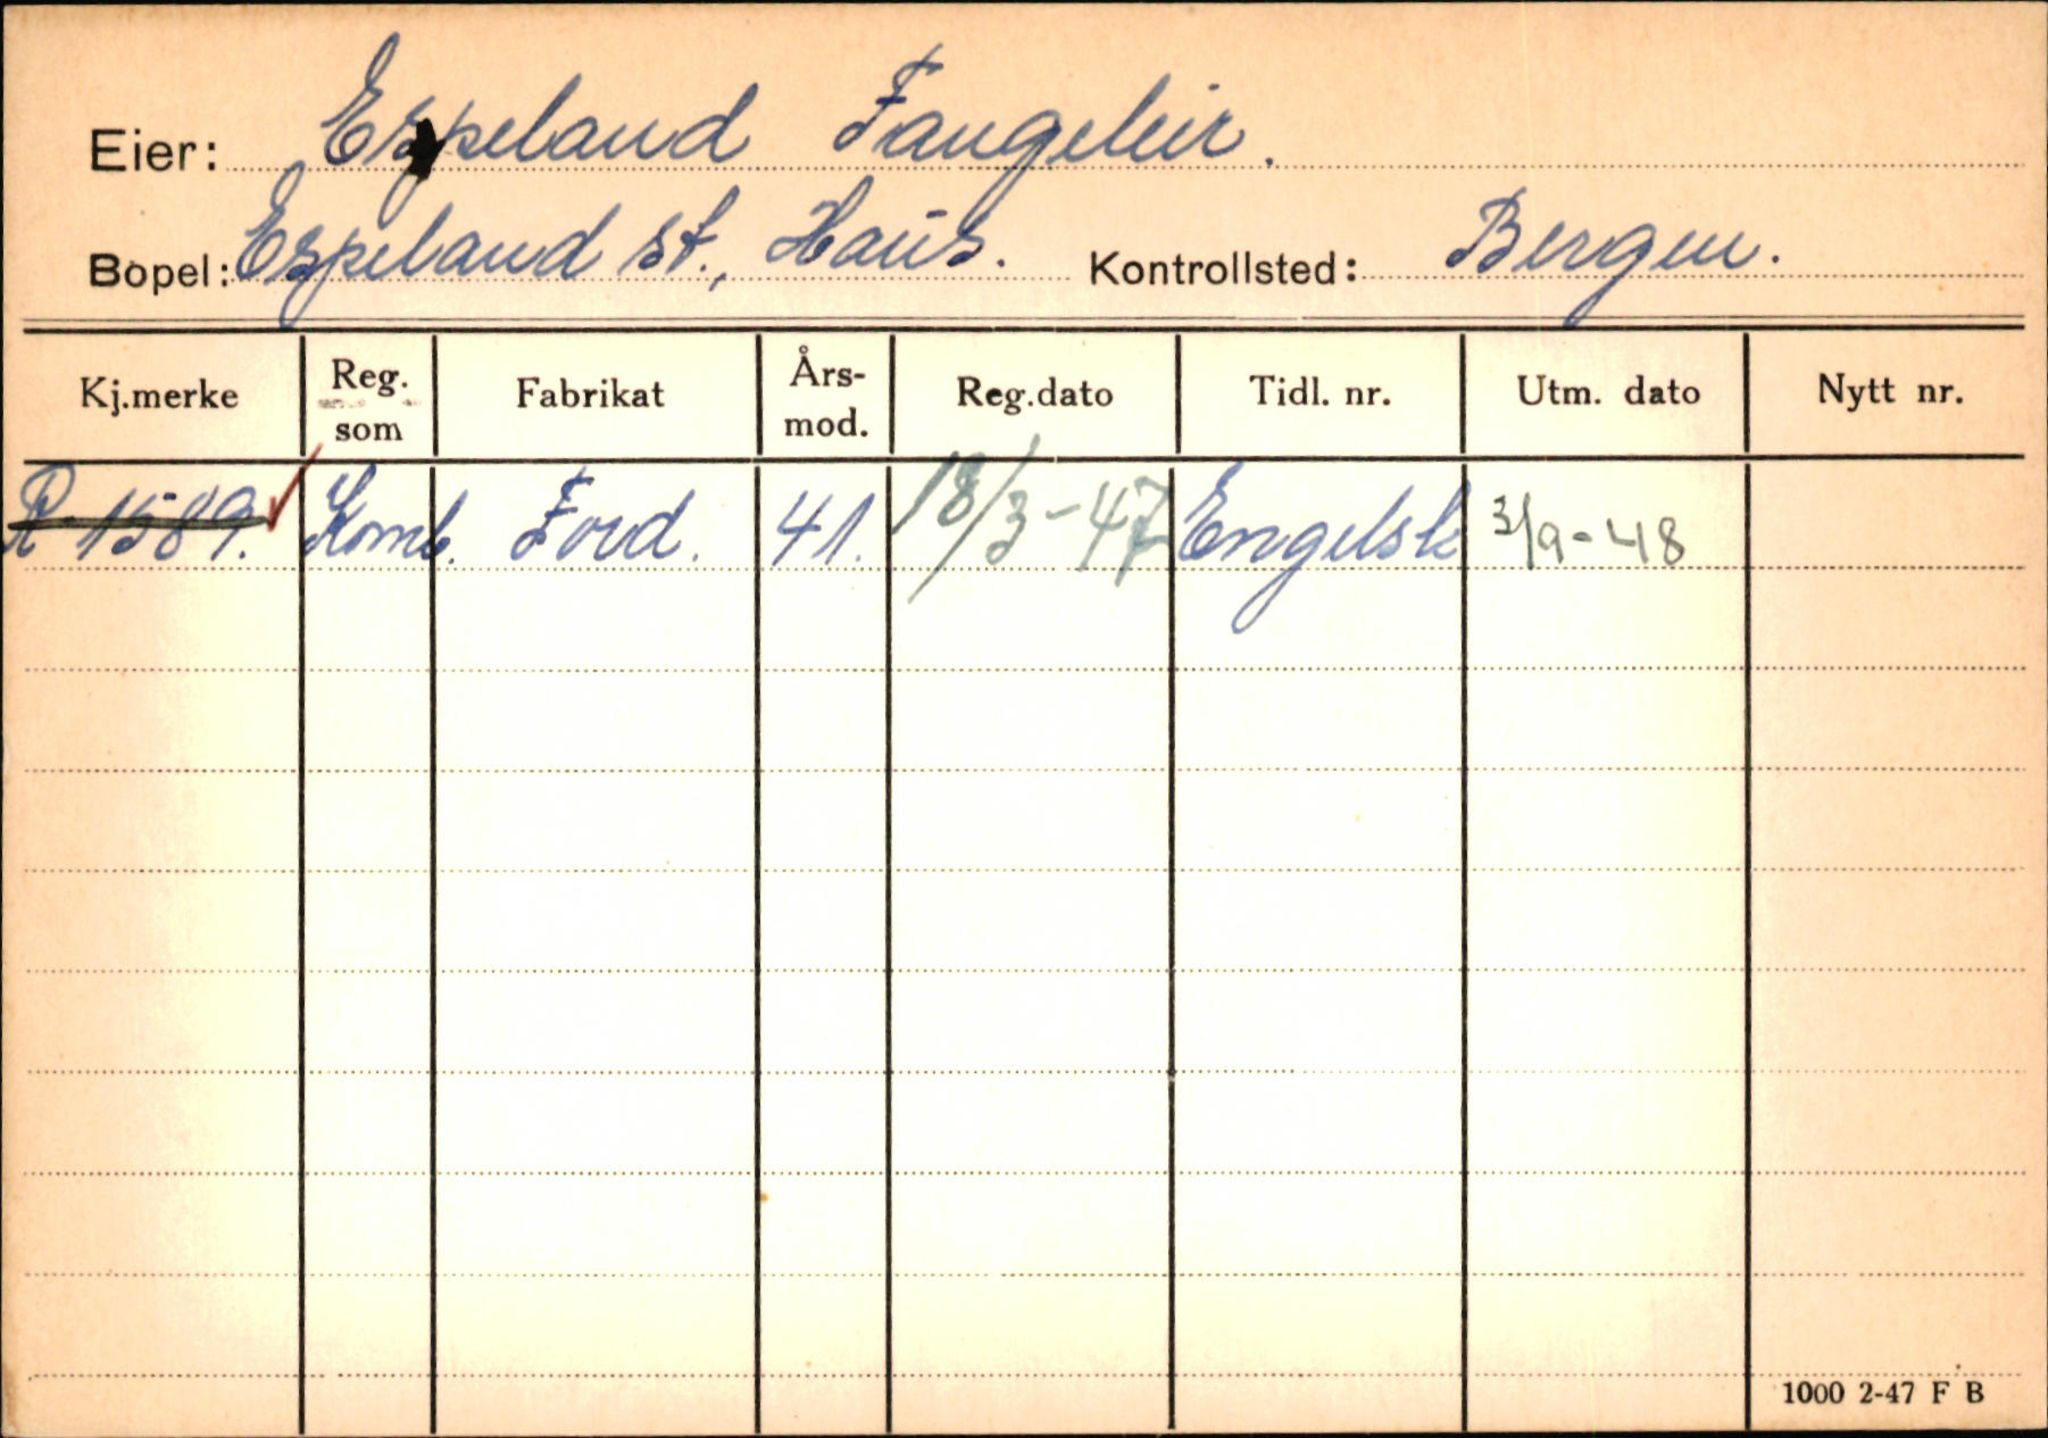 Eier: Espeland Fangeleir.
Bopel: Espeland st., Haus. Kontrollsted: Bergen.
Kj.merke Reg. som Fabrikat Års- mod. Reg.dato Tidl. nr. Utm. dato Nytt nr.
R 1589. Komb. Ford. 41. 18/3-47 Engelsk 3/9-48
1000 2-47 F B